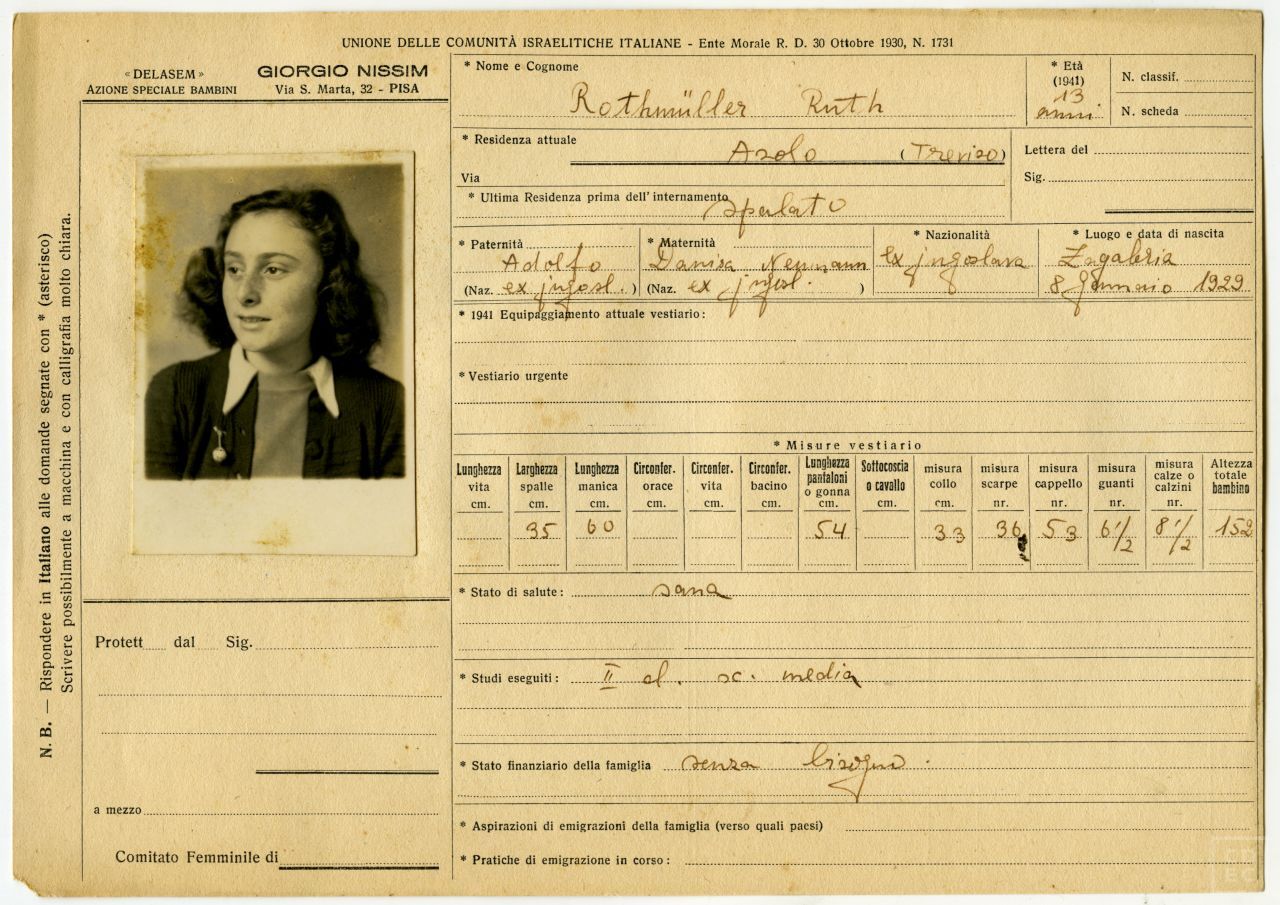 UNIONE DELLE COMUNITÀ ISRAELITICHE ITALIANE - Ente Morale R. D. 30 Ottobre 1930, N. 1731
« DELASEM »
AZIONE SPECIALE BAMBINI
GIORGIO NISSIM
Via S. Marta, 32 - PISA
N. B. — Rispondere in Italiano alle domande segnate con * (asterisco)
Scrivere possibilmente a macchina e con calligrafia molto chiara.
Protett dal Sig.
a mezzo
Comitato Femminile di
* Nome e Cognome
Rothmüller Ruth
* Età
(1941)
13
anni
N. classif.
N. scheda
* Residenza attuale
Asolo (Treviso)
Via
* Ultima Residenza prima dell' internamento
Spalato
Lettera del
Sig.
* Paternità
Adolfo
(Naz. ex jugosl. )
* Maternità
Danica Neumann
(Naz. ex jugosl. )
* Nazionalità
ex jugoslava
* Luogo e data di nascita
Zagabria
8 Gennaio 1929
* 1941 Equipaggiamento attuale vestiario:
* Vestiario urgente
* Misure vestiario
Lunghezza vita cm.
Larghezza spalle cm. 35
Lunghezza manica cm. 60
Circonfer. orace cm.
Circonfer. vita cm.
Circonfer. bacino cm.
Lunghezza pantaloni o gonna cm. 54
Sottocoscia o cavallo cm.
misura collo cm. 33
misura scarpe nr. 36
misura cappello nr. 53
misura guanti nr. 6 1/2
misura calze o calzini nr. 8 1/2
Altezza totale bambino 152
* Stato di salute: sana
* Studi eseguiti: II cl. sc. media
* Stato finanziario della famiglia senza bisogno.
* Aspirazioni di emigrazioni della famiglia (verso quali paesi)
* Pratiche di emigrazione in corso: